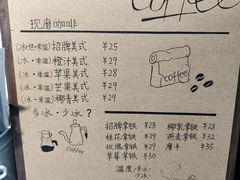 coffee
现磨咖啡
(冰·热·常温) 招牌美式 ¥25
(冰·常温) 橙汁美式 ¥29
(冰·常温) 苹果美式 ¥28
(冰·常温) 芒果美式 ¥28
(冰·常温) 椰青美式 ¥28
多冰·少冰?
coffee
coffee
招牌拿铁 ¥28 椰乳拿铁 ¥28
桂花拿铁 ¥29 燕麦拿铁 ¥32
玫瑰拿铁 ¥29 摩卡 ¥35
草莓拿铁 ¥30
温度:冰
少冰